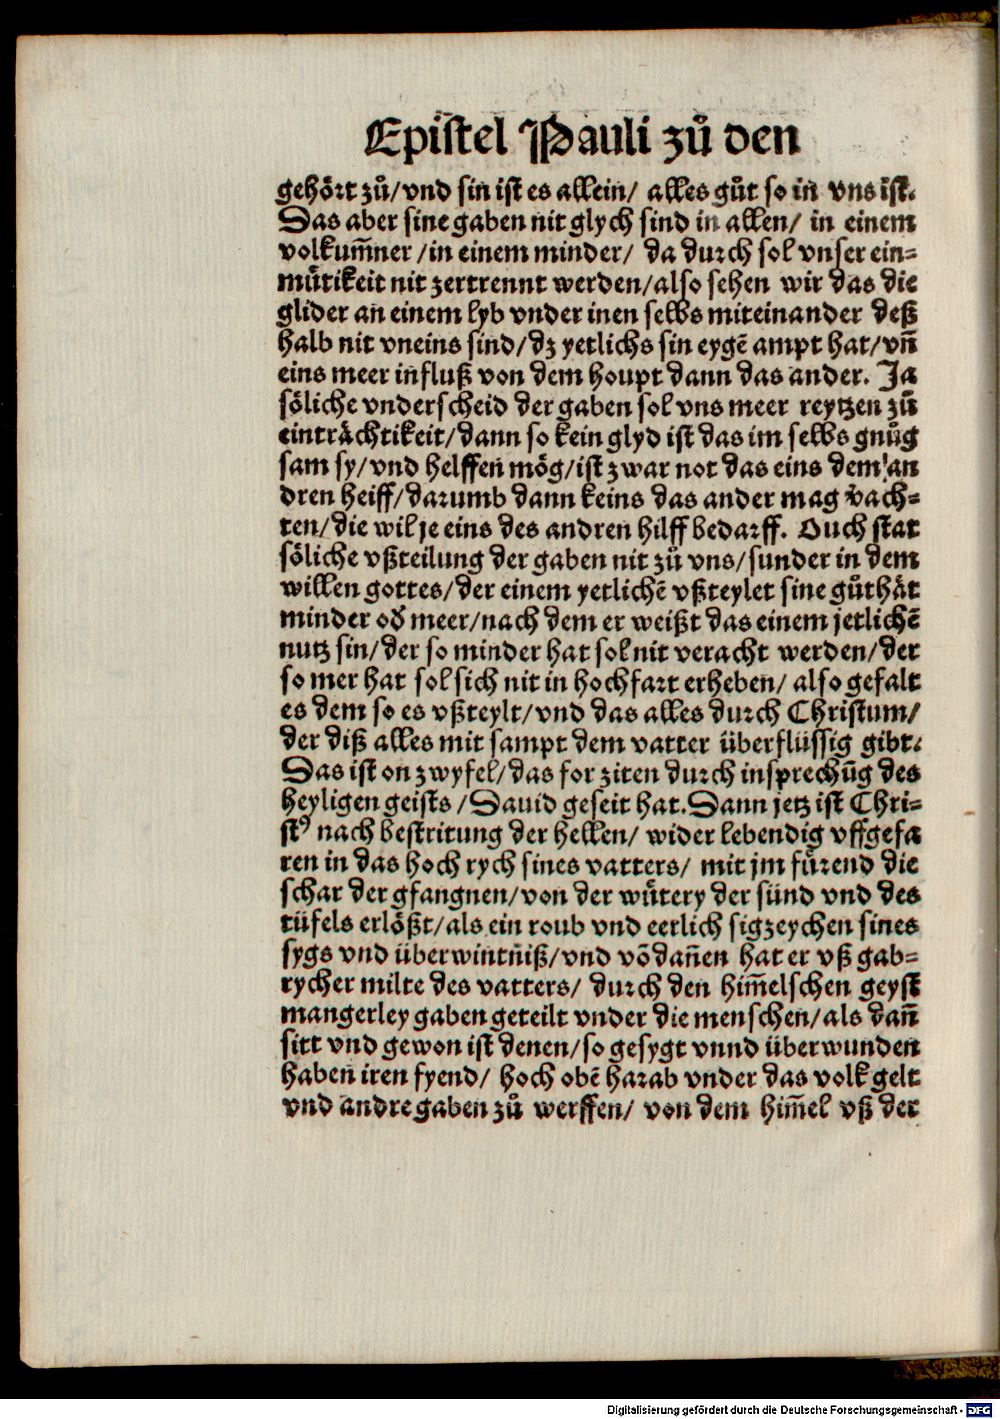 Epistel Pauli zů den
gehört zů/vnd sin ist es allein/ alles gůt so in vns ist.
Das aber sine gaben nit glych sind in allen/ in einem
volkum̄ner/in einem minder/ da durch sol vnser ein⸗
mütikeit nit zertrennt werden/also sehen wir das die
glider an einem lyb vnder inen selbs miteinander deß
halb nit vneins sind/dz yetlichs sin eygē ampt hat/vn̄
eins meer influß von dem houpt dann das ander. Ja
söliche vnderscheid der gaben sol vns meer reytzen zů
einträchtikeit/dann so kein glyd ist das im selbs gnůg
sam sy/vnd helffen mög/ist zwar not das eins dem an
dren helff/darumb dann keins das ander mag v̄ach⸗
ten/die wil je eins des andren hilff bedarff. Ouch stat
söliche vßteilung der gaben nit zů vns/sunder in dem
willen gottes/der einem yetlichē vßteylet sine gůthät
minder od̕ meer/nach dem er weißt das einem jetlichē
nutz sin/der so minder hat sol nit veracht werden/der
so mer hat sol sich nit in hochfart erheben/ also gefalt
es dem so es vßteylt/vnd das alles durch Christum/
der diß alles mit sampt dem vatter überflüssig gibt.
Das ist on zwyfel/das for ziten durch insprechūg des
heyligen geists/Dauid geseit hat. Dann jetz ist Chri⸗
stꝰ nach bestritung der hellen/ wider lebendig vffgefa
ren in das hoch rych sines vatters/ mit jm fürend die
schar der gfangnen/von der wütery der sünd vnd des
tüfels erlößt/als ein roub vnd eerlich sigzeychen sines
sygs vnd überwintniß/vnd vō dan̄en hat er vß gab⸗
rycher milte des vatters/ durch den him̄elschen geyst
mangerley gaben geteilt vnder die menschen/als dan̄
sitt vnd gewon ist denen/so gesygt vnnd überwunden
haben iren fyend/ hoch obē harab vnder das volk gelt
vnd andre gaben zů werffen/ von dem him̄el vß der
Digitalisierung gefördert durch die Deutsche Forschungsgemeinschaft - DFG